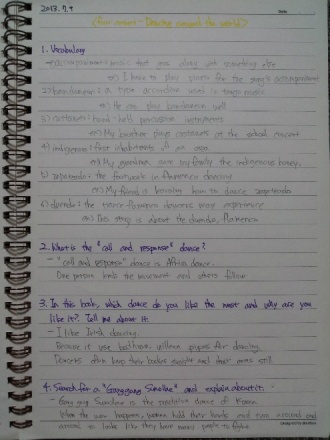 2013. 7. 4
Date
Dancing around the world>
1. Vocabulary
1) accompaniment: music that goes along with something else
ex) I have to play piano for the song's accompaniment
2) bandoneon: a type accordion used in tango music
ex) He can play bandoneon well
3) castanets: hand held percussion instruments
ex) My brother plays castanets at the school concert
4) indigenous: first inhabitants of an area
ex) My grandma
5) zapateado: the footwork in flamenco dancing
ex) My friend is learning how to dance zapateado
6) duende: the trance flamenco dancers may experience
ex) This song is about the duende, flamenco
2. What is the "call and response" dance?
- "call and response" dance is Africa dance.
One person leads the movement and others follow
3. In this book, which dance do you like the most and why are you
like it? Tell me about it.
- I like Irish dancing.
Because it use uilleann pipes for dancing.
Dancers often keep their bodies straight and their arms still.
4. Search for a "Ganggang Sunallae" and explain about it.
- Gang gang Suwollae is the tradition dance of Korea
When the war happens, women hold their hands and turn around and
around to look like they have many people to fight